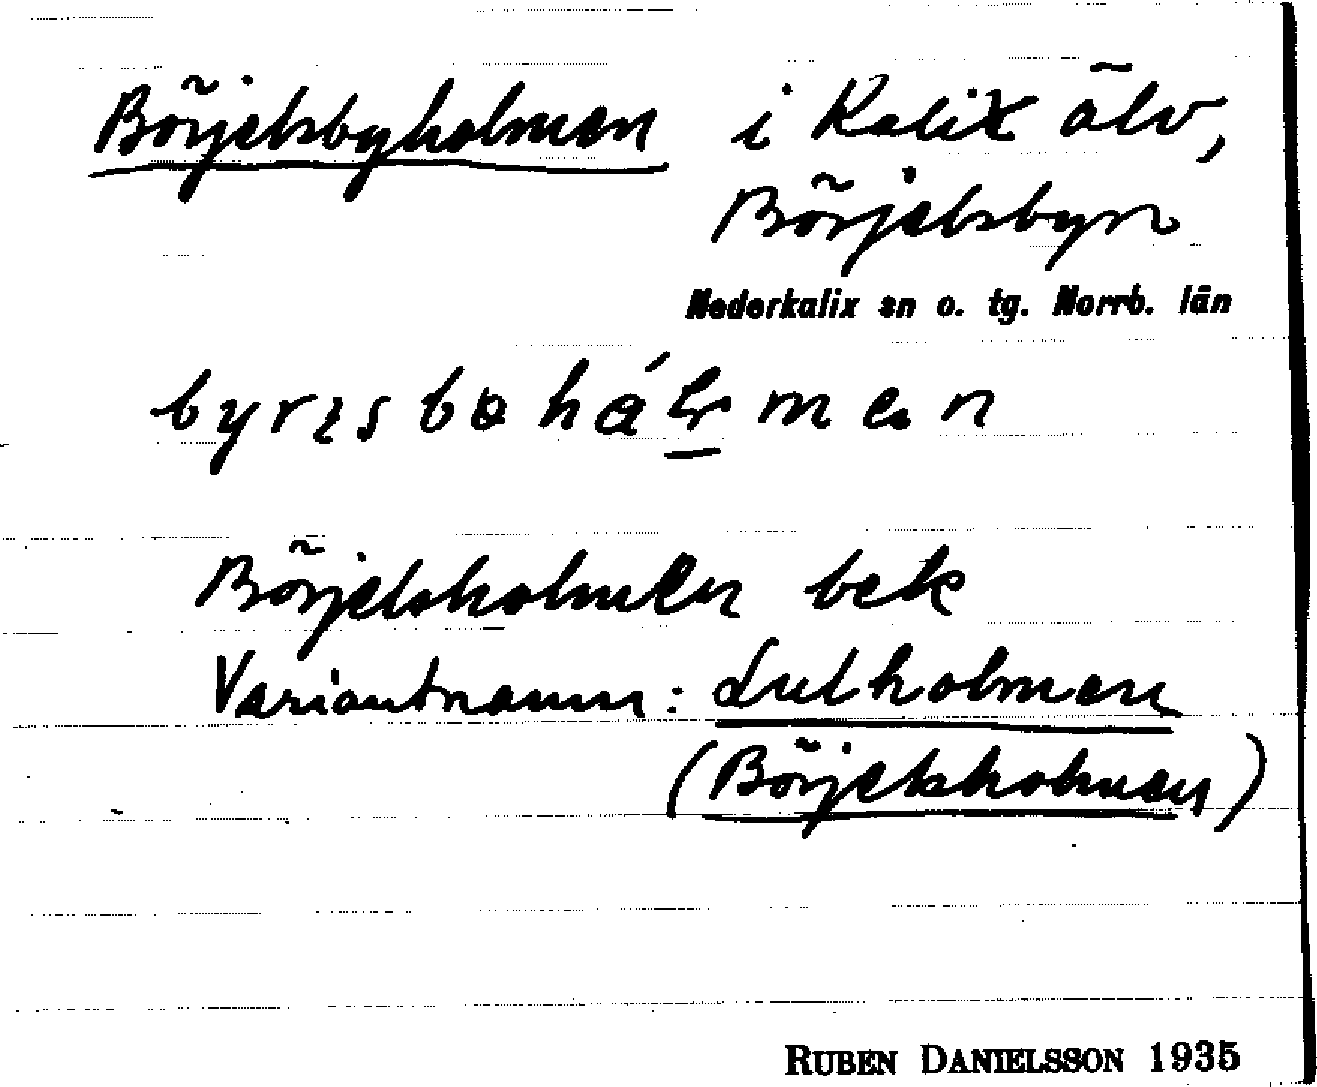 Börjelsbyholmen i Kalix älv,
Börjelsbyn
Nederkalix sn o. tg. Norrb. län
Börjelsholmen bek
Variantnamn: Lutholmen
(Börjelsholmen)
RUBEN DANIELSSON 1935